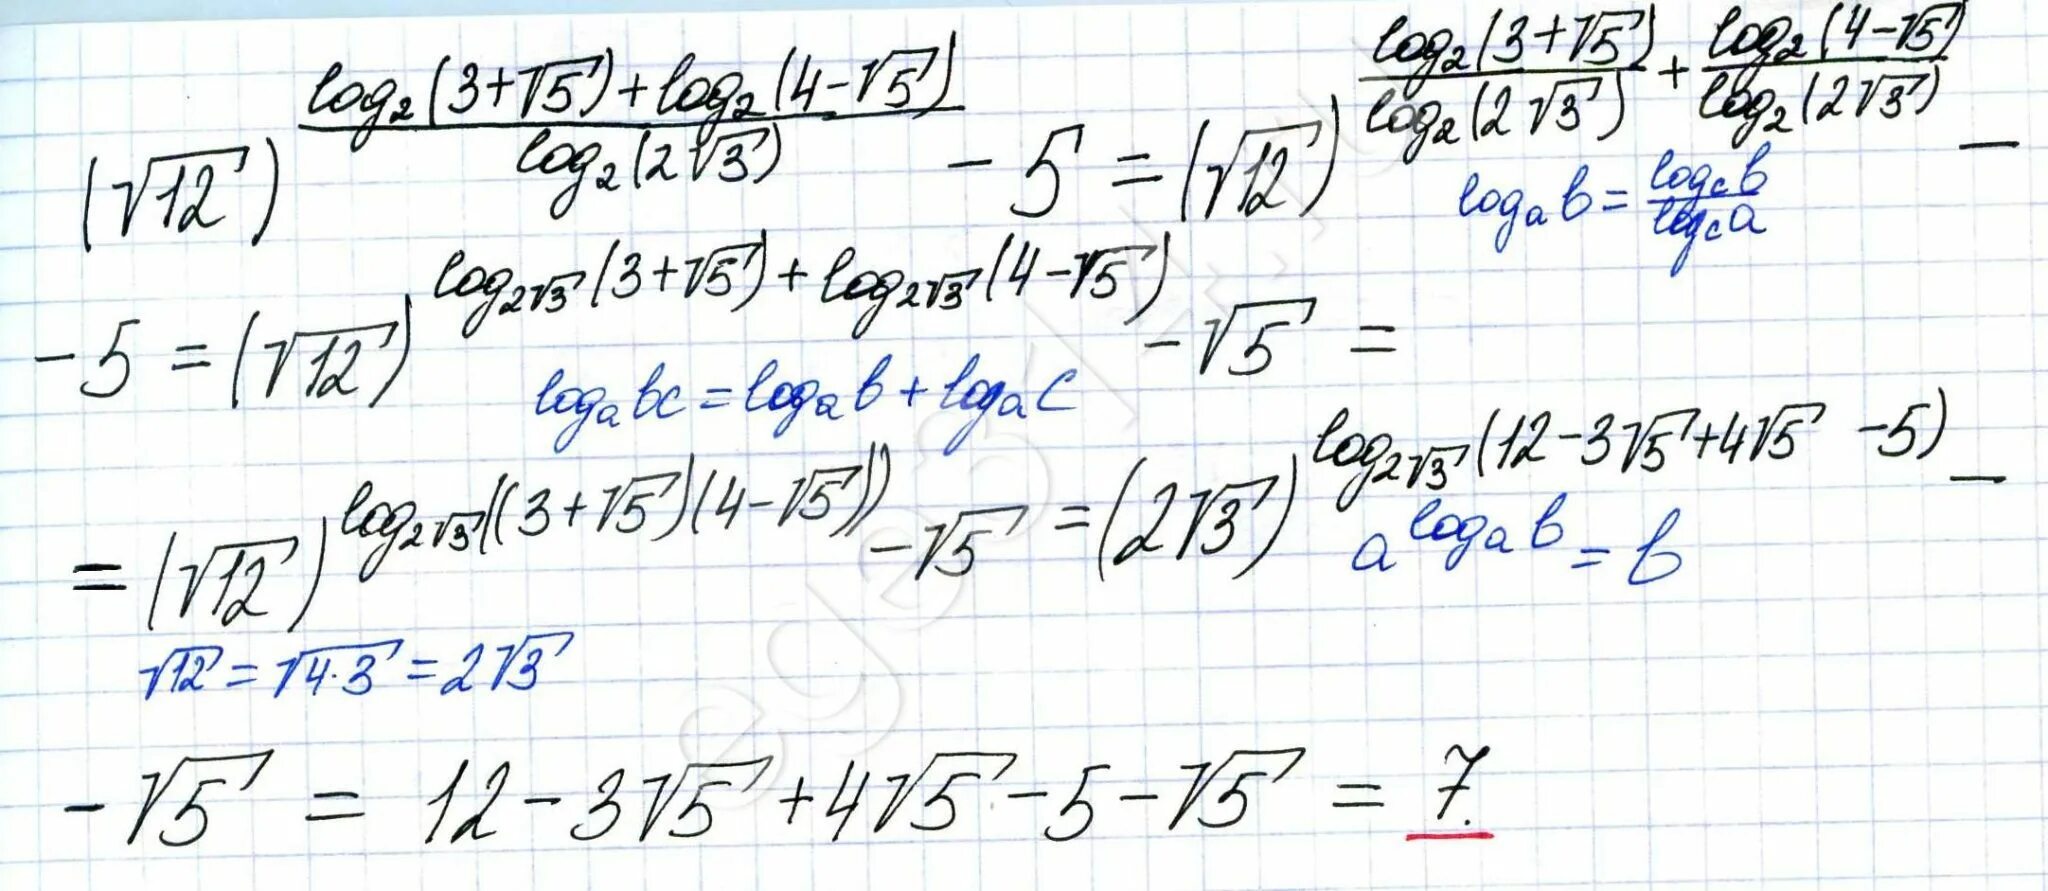 (√12)^((log₂(3+√5)+log₂(4-√5))/(log₂(2√3))) - 5 = (√12)^((log₂(3+√5))/(log₂(2√3)) + (log₂(4-√5))/(log₂(2√3))) -
logₐb = (log_c b)/(log_c a)
- 5 = (√12)^(log_{2√3}(3+√5)+log_{2√3}(4-√5)) - √5 =
logₐbc = logₐb + logₐc
= (√12)^(log_{2√3}((3+√5)(4-√5))) - √5 = (2√3)^(log_{2√3}(12-3√5+4√5 -5)) -
a^(logₐb) = b
√12 = √4·3 = 2√3
- √5 = 12 - 3√5 + 4√5 - 5 - √5 = 7.